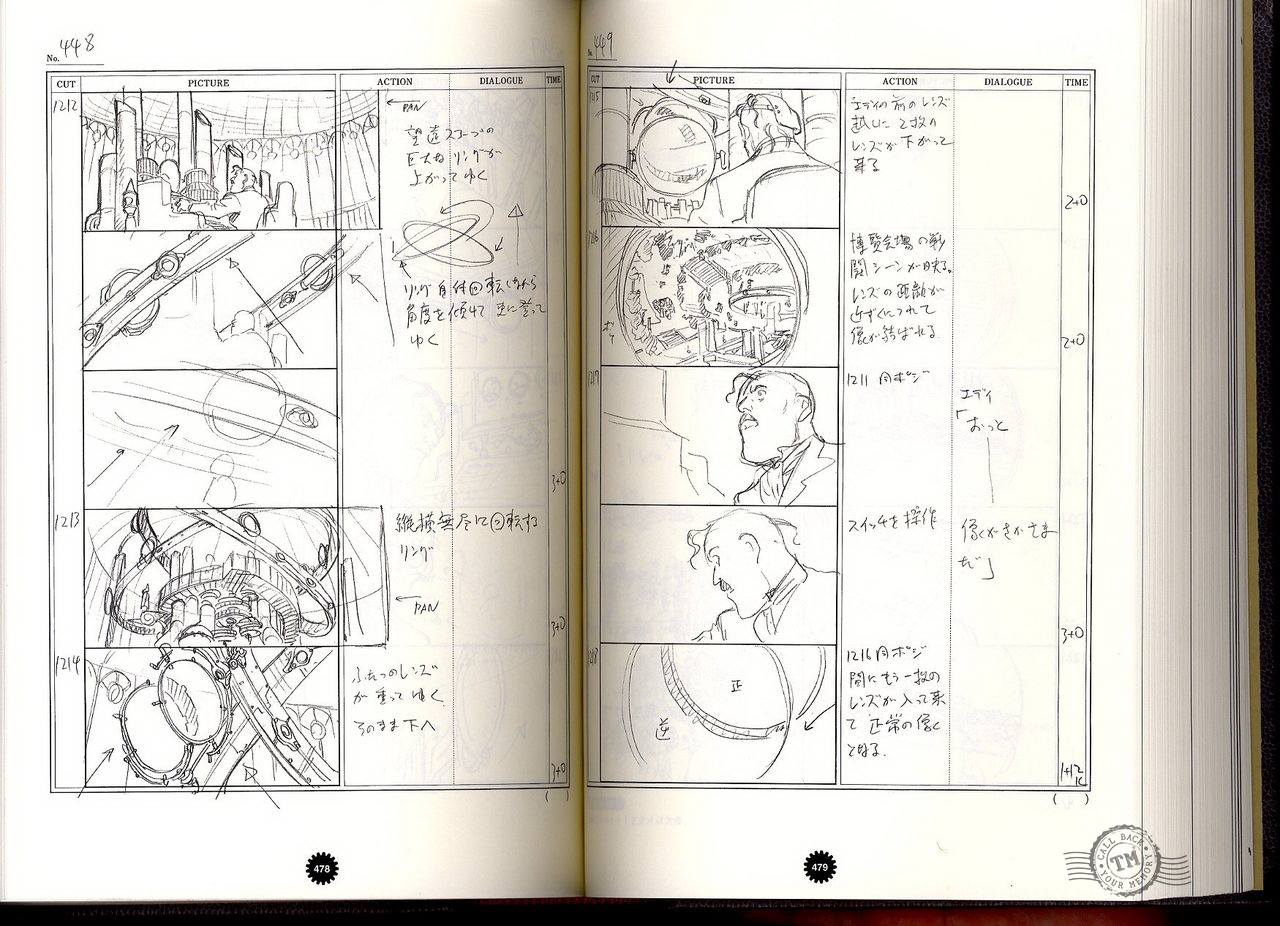 No. 448
CUT PICTURE ACTION DIALOGUE TIME
1212
← PAN
望遠スコープの
巨大なリングが
上がってゆく
リング自体回転しながら
角度を傾けて 更に登って
ゆく
3+0
1213
縦横無尽に回転する
リング
← PAN
3+0
1214
ふたつのレンズ
が重ってゆく
そのまま下へ
3+0
( )
478
No. 449
CUT PICTURE ACTION DIALOGUE TIME
1215
エディの前のレンズ
越しに 2枚の
レンズが下がって
来る
2+0
1216
ボケ
博覧会場の戦
闘シーンが映る。
レンズの距離が
近ずくにつれて
像が結ばれる
2+0
1217
1211 同ポジ
エディ
「おっと
スイッチを操作
像がさかさま
だ」
3+0
1218
正
逆
1216 同ポジ
間にもう一枚の
レンズが入って来
て 正常の像に
なる。
1+12
( )
479
CALL BACK
TM
YOUR MEMORY